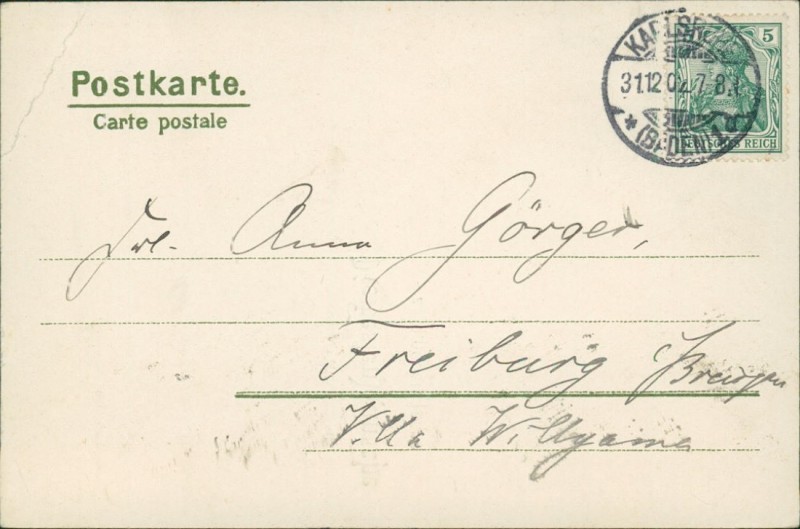 Postkarte.
Carte postale
KARLSR
31.12.02.7-8
* (BADEN) 1
5
DEUTSCHES REICH
Frl. Anna Görger,
Freiburg
Villa Willyama